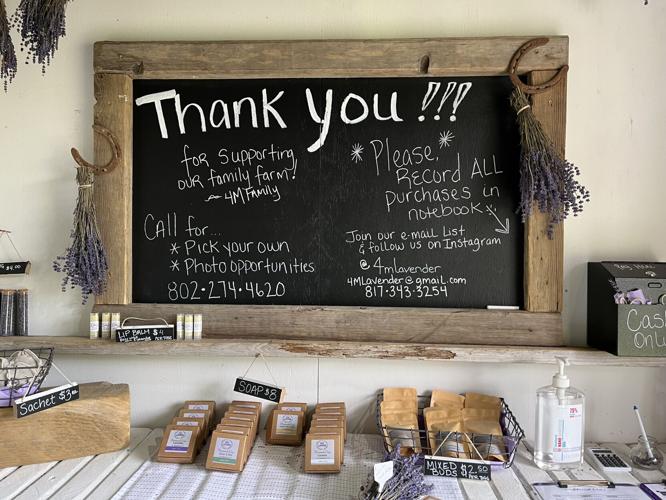 Thank you!!!
for supporting
our family farm!
~ 4M Family
Call for...
* Pick your own
* Photo opportunities
802·274·4620
* Please, *
Record ALL
purchases in
notebook
Join our e-mail List
& follow us on Instagram
@ 4mlavender
4MLavender@gmail.com
817·343·3254
$4.00
LIP BALM $4
Cash
Only
Sachet $3.00
SOAP $8
MIXED $2.50
BUDS